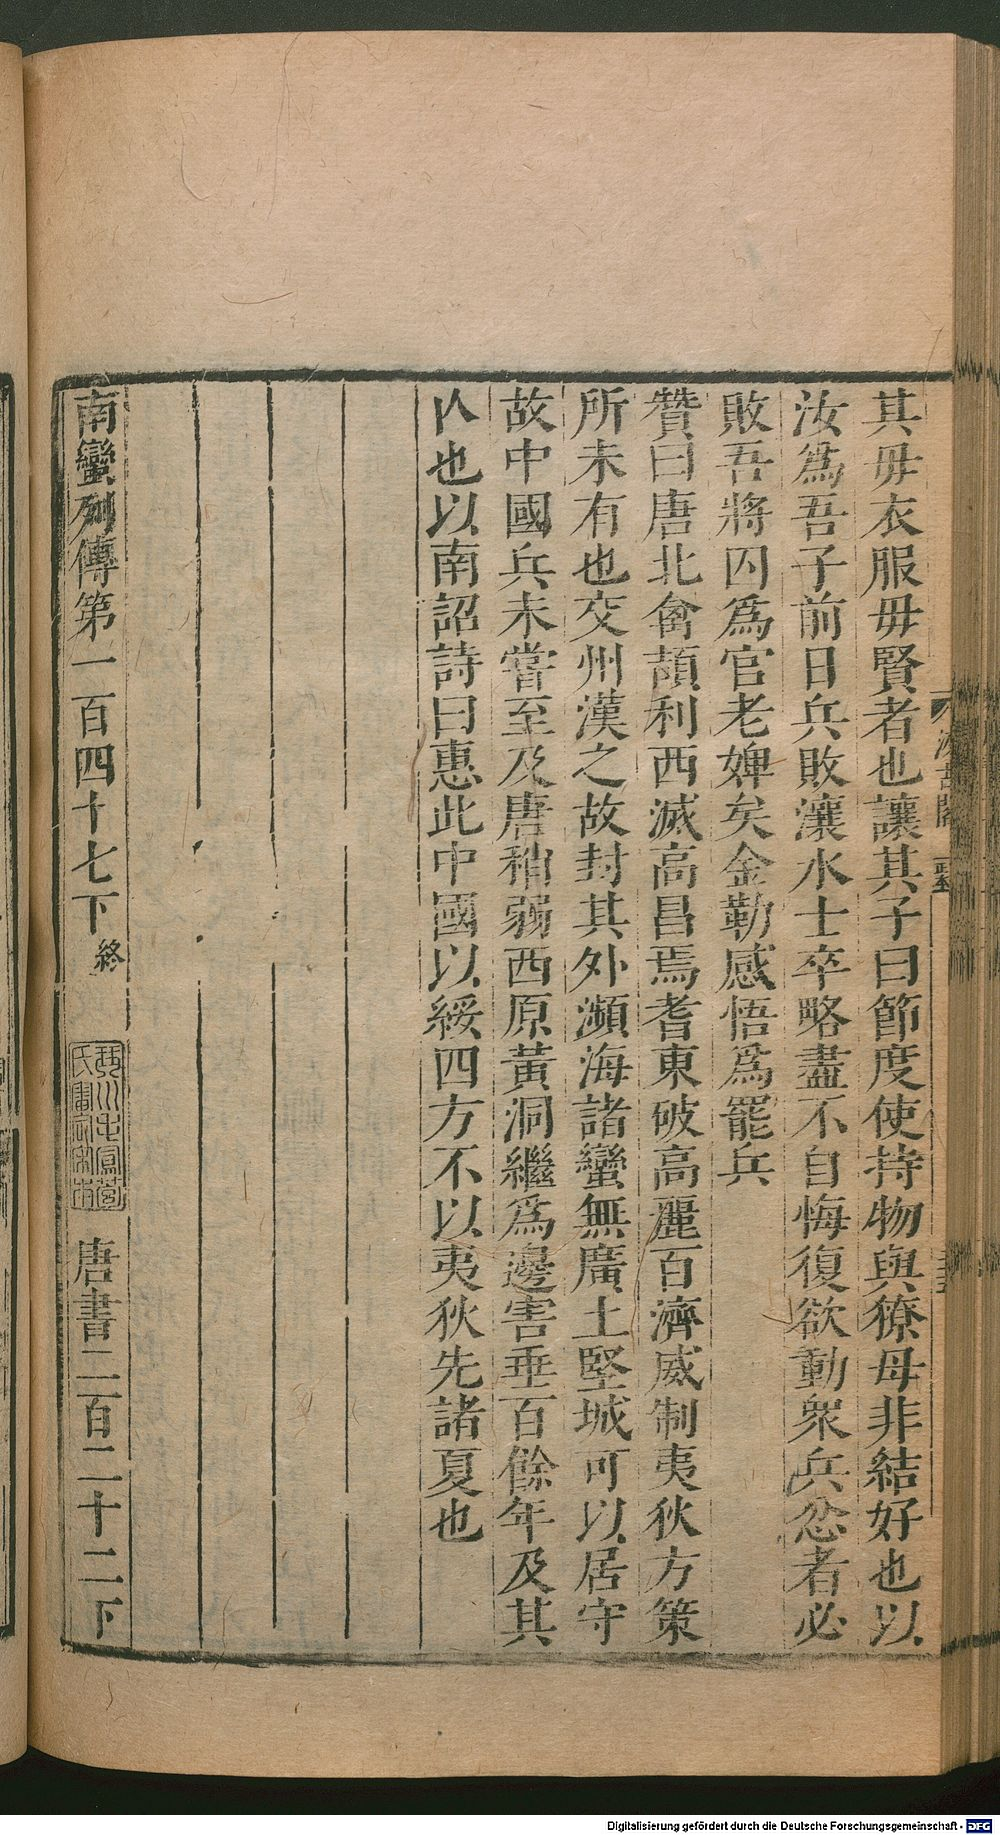 其毋衣服毋賢者也讓其子曰節度使持物與獠母非結好也以
汝爲吾子前日兵敗瀼水士卒略盡不自悔復欲動衆兵忿者必
敗吾將囚爲官老婢矣金勒感悟爲罷兵
贊曰唐北禽頡利西滅高昌焉耆東破高麗百濟威制夷狄方策
所未有也交州漢之故封其外瀕海諸蠻無廣土堅城可以居守
故中國兵未嘗至及唐稍弱西原黃洞繼爲邊害垂百餘年及其
亾也以南詔詩曰惠此中國以綏四方不以夷狄先諸夏也
南蠻列傳第一百四十七下 終
唐書二百二十二下
Digitalisierung gefördert durch die Deutsche Forschungsgemeinschaft - DFG